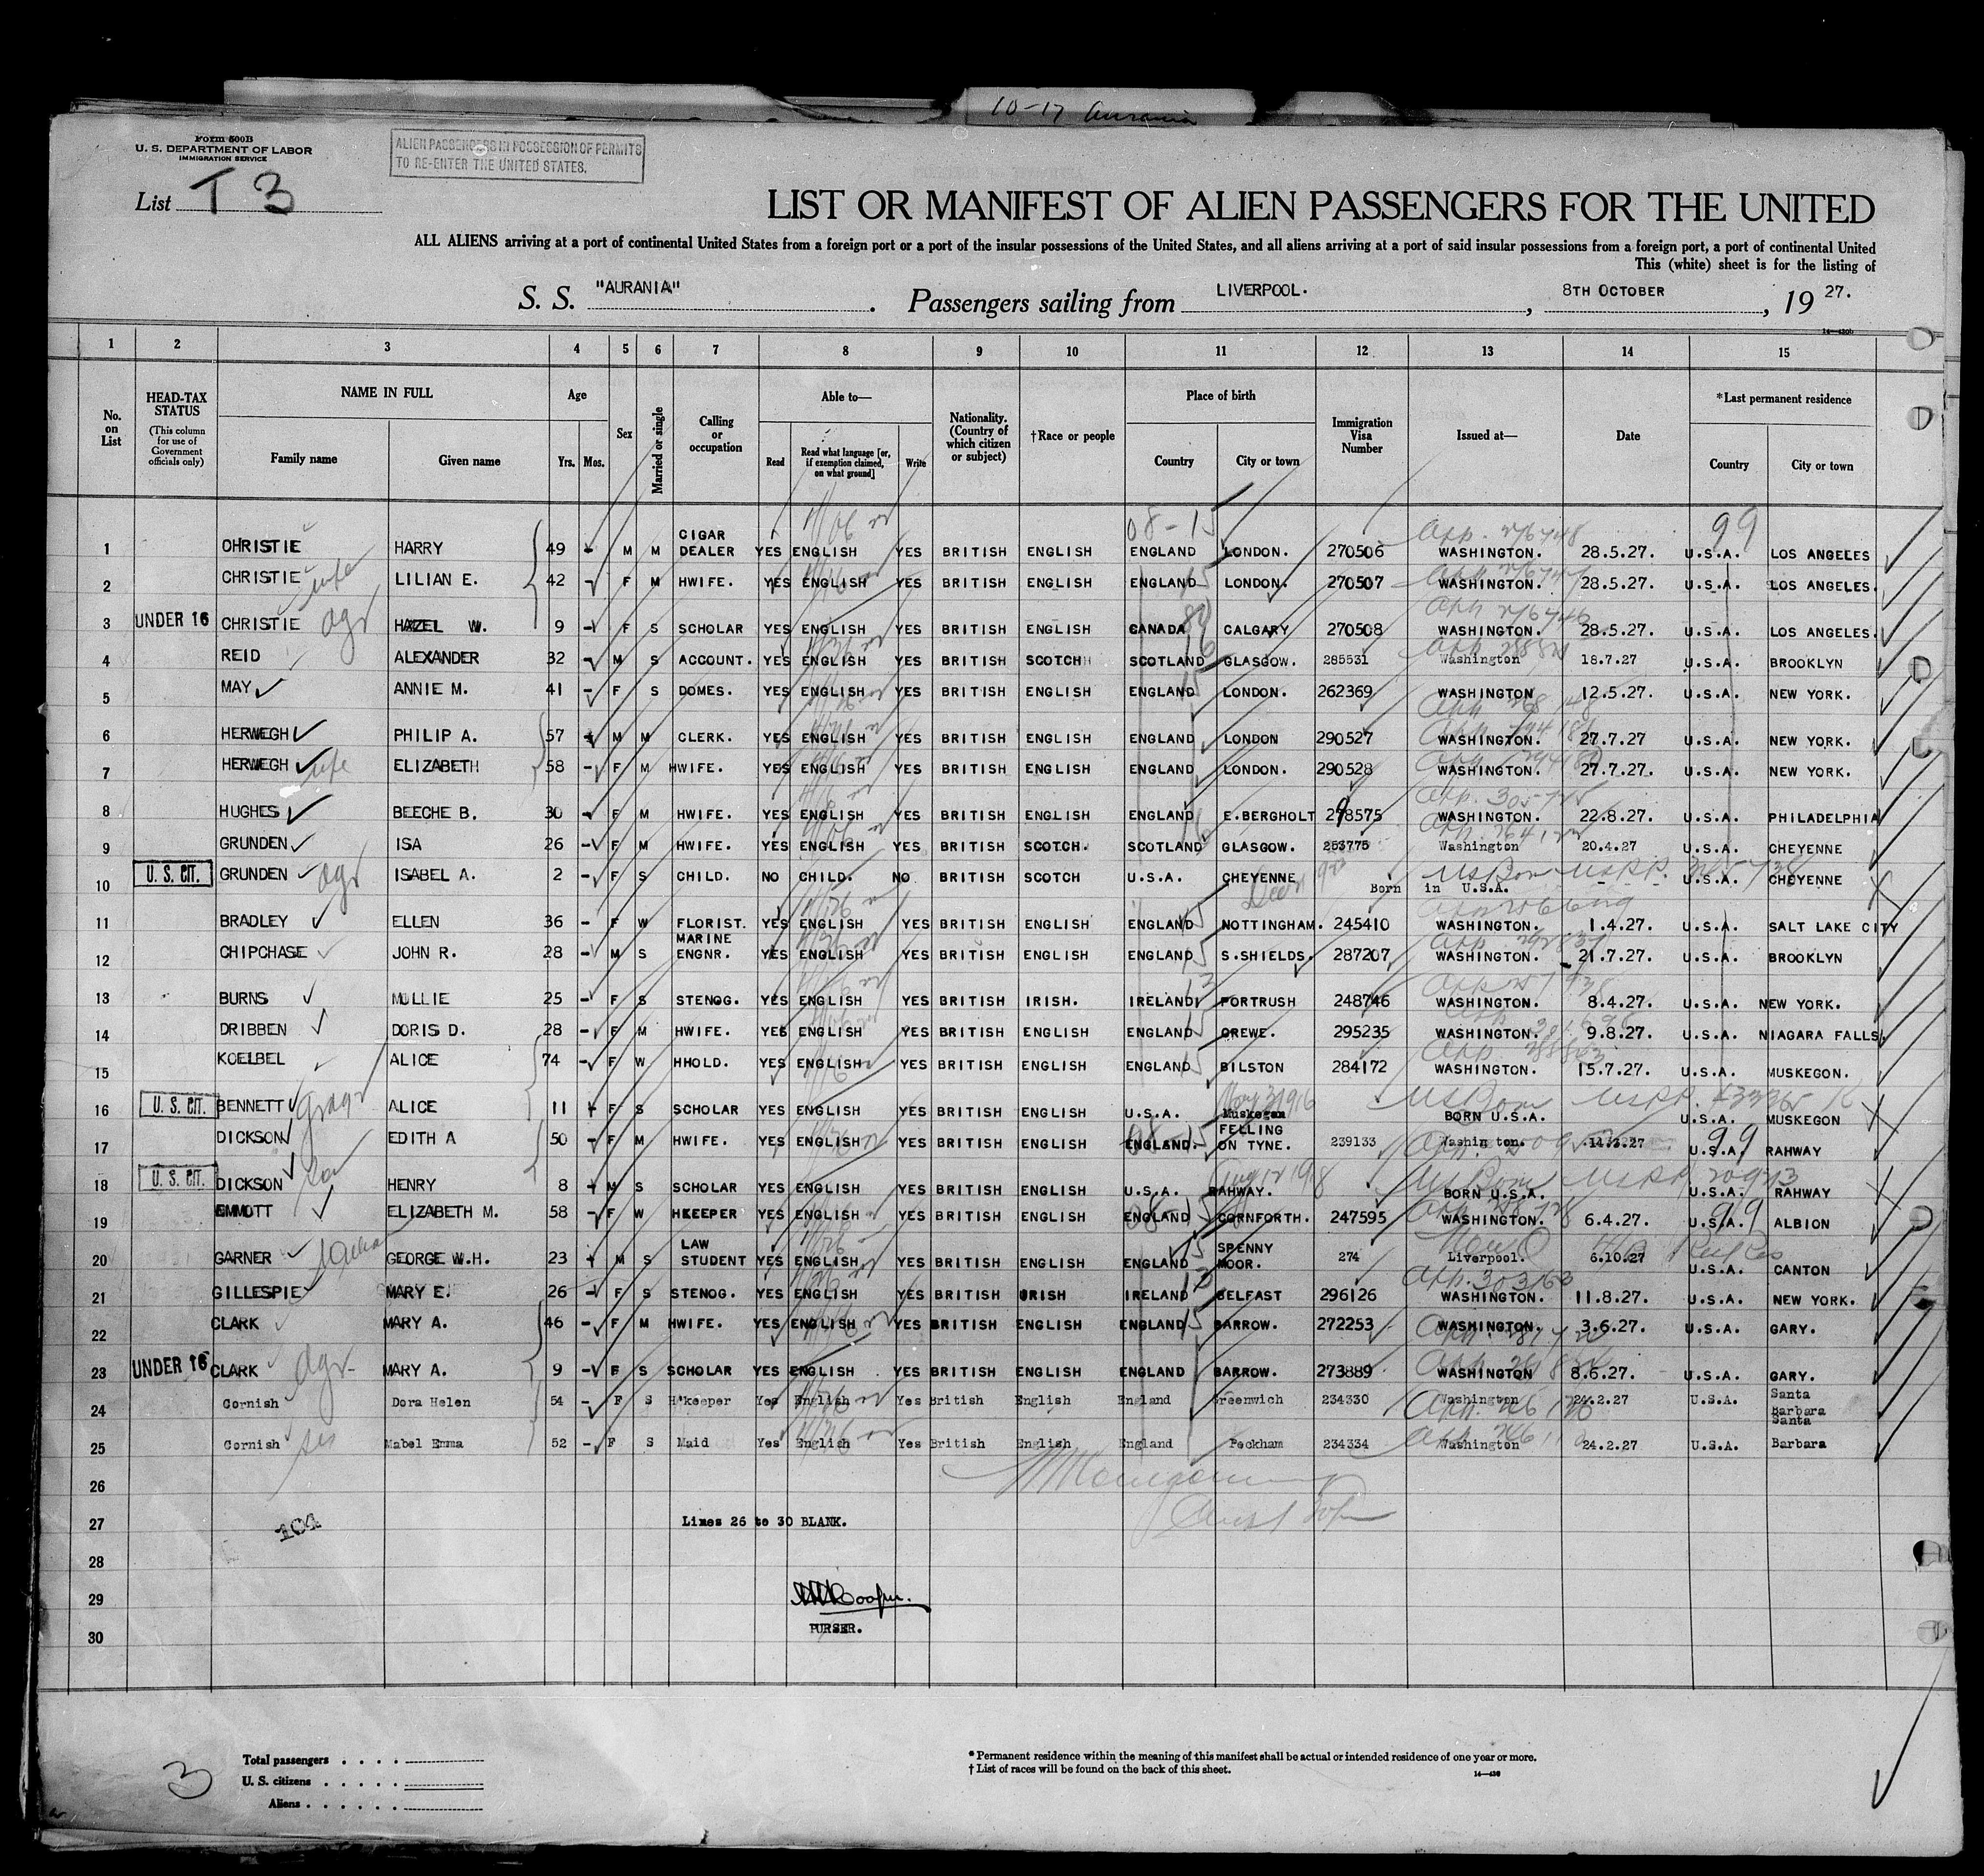 10-17 Aurania
Form 500B
U. S. DEPARTMENT OF LABOR
IMMIGRATION SERVICE
ALIEN PASSENGERS IN POSSESSION OF PERMITS
TO RE-ENTER THE UNITED STATES.
List T 3
LIST OR MANIFEST OF ALIEN PASSENGERS FOR THE UNITED
ALL ALIENS arriving at a port of continental United States from a foreign port or a port of the insular possessions of the United States, and all aliens arriving at a port of said insular possessions from a foreign port, a port of continental United
This (white) sheet is for the listing of
S. S. "AURANIA" . Passengers sailing from LIVERPOOL. , 8TH OCTOBER , 19 27.
1 2 3 4 5 6 7 8 9 10 11 12 13 14 15
No. on List
HEAD-TAX STATUS (This column for use of Government officials only)
NAME IN FULL Family name Given name
Age Yrs. Mos.
Sex
Married or single
Calling or occupation
Able to— Read Read what language [or, if exemption claimed, on what ground] Write
Nationality. (Country of which citizen or subject)
†Race or people
Place of birth Country City or town
Immigration Visa Number
Issued at—
Date
*Last permanent residence Country City or town
08-15 99
1 CHRISTIE HARRY 49 - M M CIGAR DEALER YES ENGLISH YES BRITISH ENGLISH ENGLAND LONDON. 270506 WASHINGTON. 28.5.27. U.S.A. LOS ANGELES
2 CHRISTIE wife LILIAN E. 42 - F M HWIFE. YES ENGLISH YES BRITISH ENGLISH ENGLAND LONDON. 270507 WASHINGTON. 28.5.27. U.S.A. LOS ANGELES.
3 UNDER 16 CHRISTIE HAZEL W. 9 - F S SCHOLAR YES ENGLISH YES BRITISH ENGLISH CANADA CALGARY 270508 WASHINGTON. 28.5.27. U.S.A. LOS ANGELES.
4 REID ALEXANDER 32 - M S ACCOUNT. YES ENGLISH YES BRITISH SCOTCH SCOTLAND GLASGOW. 285531 Washington 18.7.27 U.S.A. BROOKLYN
5 MAY ANNIE M. 41 - F S DOMES. YES ENGLISH YES BRITISH ENGLISH ENGLAND LONDON. 262369 WASHINGTON 12.5.27. U.S.A. NEW YORK.
6 HERWEGH PHILIP A. 57 M M CLERK. YES ENGLISH YES BRITISH ENGLISH ENGLAND LONDON 290527 WASHINGTON. 27.7.27 U.S.A. NEW YORK.
7 HERWEGH wife ELIZABETH 58 - F M HWIFE. YES ENGLISH YES BRITISH ENGLISH ENGLAND LONDON. 290528 WASHINGTON. 27.7.27. U.S.A. NEW YORK.
8 HUGHES BEECHE B. 30 - F M HWIFE. YES ENGLISH YES BRITISH ENGLISH ENGLAND E.BERGHOLT 298575 WASHINGTON. 22.8.27. U.S.A. PHILADELPHIA
9 GRUNDEN ISA 26 - F M HWIFE. YES ENGLISH YES BRITISH SCOTCH. SCOTLAND GLASGOW. 253775 Washington 20.4.27 U.S.A. CHEYENNE
10 U. S. CIT. GRUNDEN ISABEL A. 2 - F S CHILD. NO CHILD. NO BRITISH SCOTCH U.S.A. CHEYENNE Born in U.S.A. U.S.A. CHEYENNE
11 BRADLEY ELLEN 36 - F W FLORIST. YES ENGLISH YES BRITISH ENGLISH ENGLAND NOTTINGHAM. 245410 WASHINGTON. 1.4.27. U.S.A. SALT LAKE CITY
12 CHIPCHASE JOHN R. 28 - M S MARINE ENGNR. YES ENGLISH YES BRITISH ENGLISH ENGLAND S.SHIELDS. 287207 WASHINGTON. 21.7.27. U.S.A. BROOKLYN
13 BURNS MOLLIE 25 - F S STENOG. YES ENGLISH YES BRITISH IRISH. IRELAND PORTRUSH 248746 WASHINGTON. 8.4.27. U.S.A. NEW YORK.
14 DRIBBEN DORIS D. 28 - F M HWIFE. YES ENGLISH YES BRITISH ENGLISH ENGLAND CREWE. 295235 WASHINGTON. 9.8.27. U.S.A. NIAGARA FALLS.
15 KOELBEL ALICE 74 - F W HHOLD. YES ENGLISH YES BRITISH ENGLISH ENGLAND BILSTON 284172 WASHINGTON. 15.7.27. U.S.A. MUSKEGON.
16 U. S. CIT. BENNETT ALICE 11 F S SCHOLAR YES ENGLISH YES BRITISH ENGLISH U.S.A. Muskegan BORN U.S.A. U.S.A. MUSKEGON
17 DICKSON EDITH A 50 - F M HWIFE. YES ENGLISH YES BRITISH ENGLISH ENGLAND. FELLING ON TYNE. 239133 Washin ton. 14.3.27 U.S.A. RAHWAY
18 U. S. CIT. DICKSON son HENRY 8 M S SCHOLAR YES ENGLISH YES BRITISH ENGLISH U.S.A. RAHWAY. BORN U.S.A. U.S.A. RAHWAY
19 EMMOTT ELIZABETH M. 58 - F W HKEEPER YES ENGLISH YES BRITISH ENGLISH ENGLAND CORNFORTH. 247595 WASHINGTON. 6.4.27. U.S.A. ALBION
20 GARNER GEORGE W.H. 23 M S LAW STUDENT YES ENGLISH YES BRITISH ENGLISH ENGLAND SPENNY MOOR. 274 Liverpool. 6.10.27 U.S.A. CANTON
21 GILLESPIE MARY E. 26 - F S STENOG. YES ENGLISH YES BRITISH IRISH IRELAND BELFAST 296126 WASHINGTON. 11.8.27. U.S.A. NEW YORK.
22 CLARK MARY A. 46 - F M HWIFE. YES ENGLISH YES BRITISH ENGLISH ENGLAND BARROW. 272253 WASHINGTON. 3.6.27. U.S.A. GARY.
23 UNDER 16 CLARK MARY A. 9 - F S SCHOLAR YES ENGLISH YES BRITISH ENGLISH ENGLAND BARROW. 273889 WASHINGTON 8.6.27. U.S.A. GARY.
24 Cornish Dora Helen 54 - F S H'keeper Yes English Yes British English England Greenwich 234330 Washington 24.2.27 U.S.A. Santa Barbara
25 Cornish Mabel Emma 52 - F S Maid Yes English Yes British English England Peckham 234334 Washington 24.2.27 U.S.A. Santa Barbara
26
27 104 Lines 26 to 30 BLANK.
28
29
PURSER.
30
3
Total passengers . . . .
U. S. citizens . . . . .
Aliens . . . . . .
* Permanent residence within the meaning of this manifest shall be actual or intended residence of one year or more.
† List of races will be found on the back of this sheet.